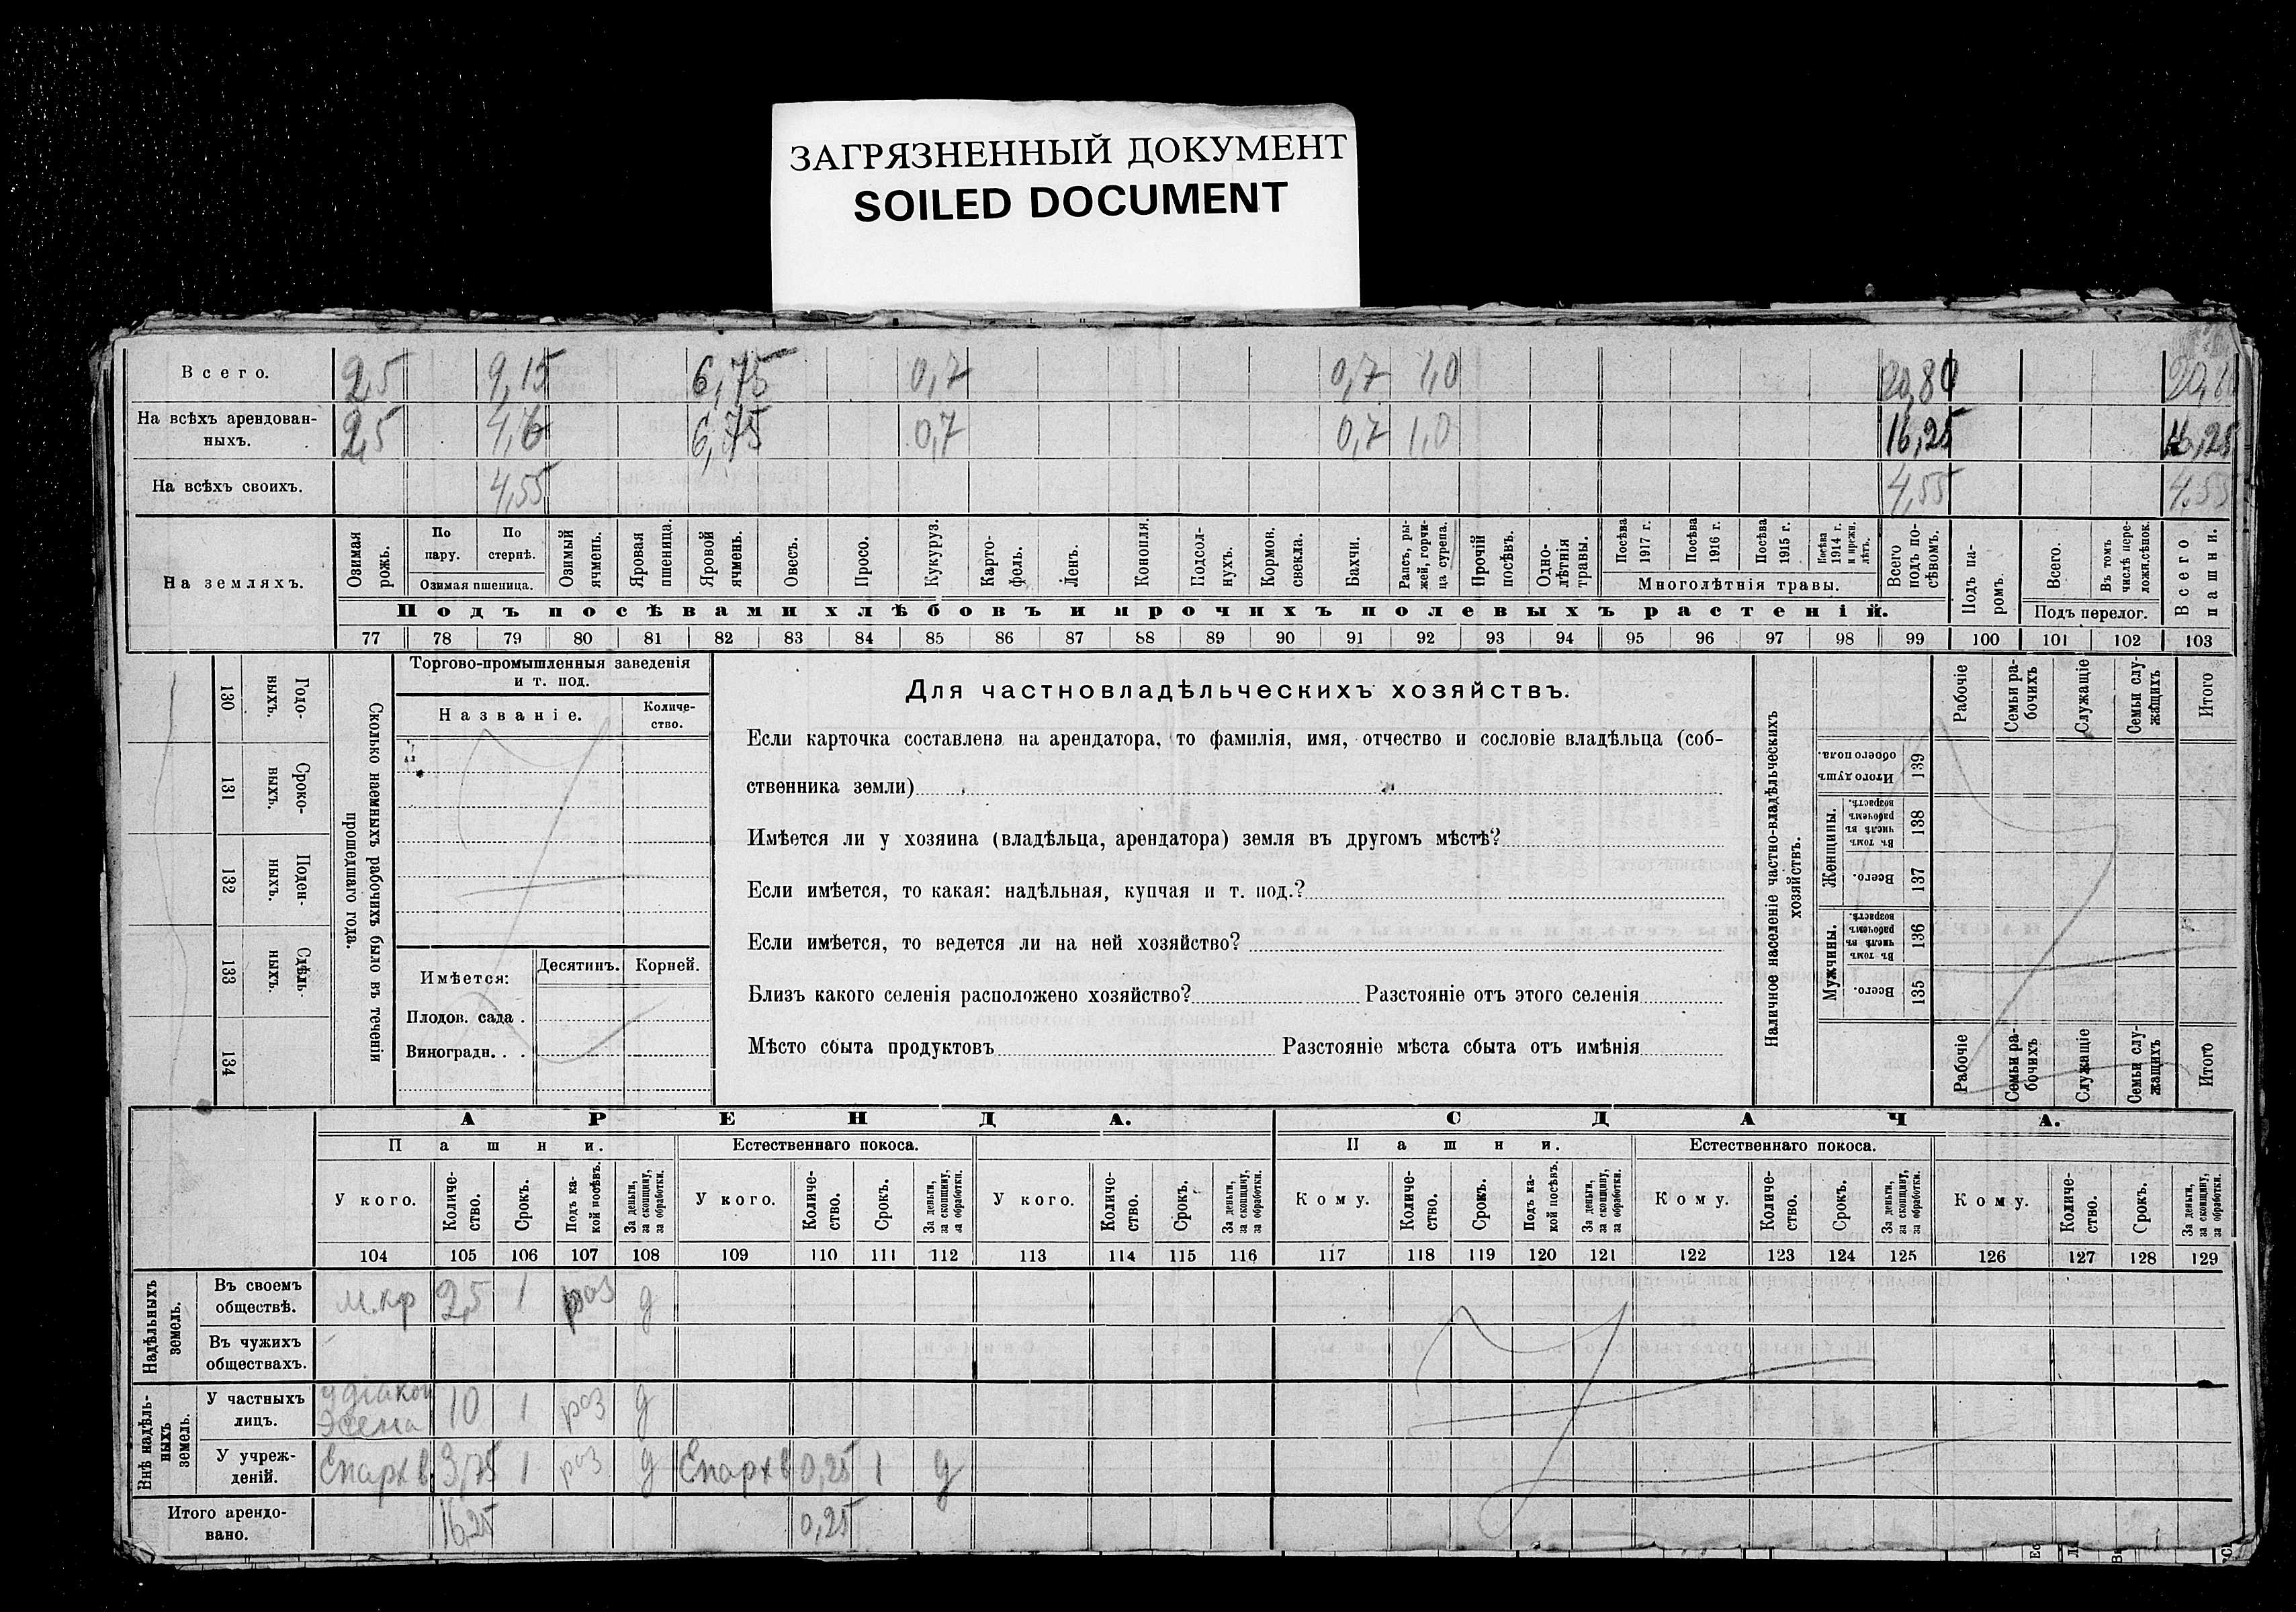 ЗАГРЯЗНЕННЫЙ ДОКУМЕНТ
SOILED DOCUMENT
Всего. 2,5 9,15 6,75 0,7 0,7 1,0 20,80
На всѣхъ арендован-
ныхъ. 2,5 4,6 6,75 0,7 0,7 1,0 16,25 16,25
На всѣхъ своихъ. 4,55 4,55 4.55
На земляхъ.
Озимая рожь.
По пару.
По стернѣ.
Озимая пшеница.
Озимый ячмень.
Яровая пшеница.
Яровой ячмень.
Овесъ.
Просо.
Кукуруз.
Карто-
фель.
Ленъ.
Конопля.
Подсол-
нухъ.
Кормов. свекла.
Бахчи.
Рапсъ, ры-
жей, горчи-
ца сурепа.
Прочій посѣвъ.
Одно-
лѣтнія травы.
Посѣва 1917 г.
Посѣва 1916 г.
Посѣва 1915 г.
Посѣва 1914 г. и прежн. лѣтъ.
Многолѣтнія травы.
Всего подъ по-
сѣвомъ.
Подъ па-
ромъ.
Всего.
Въ томъ числѣ пере-
ложн. сѣнок.
Подъ перелог.
Всего пашни.
Подъ посѣвами хлѣбовъ и прочихъ полевыхъ растеній.
77 78 79 80 81 82 83 84 85 86 87 88 89 90 91 92 93 94 95 96 97 98 99 100 101 102 103
130 Годо-
выхъ.
131 Сроко-
выхъ.
132 Поден-
ныхъ.
133 Сдѣль-
ныхъ.
134
Сколько наемныхъ рабочихъ было въ теченіи
прошедшаго года.
Торгово-промышленныя заведенія
и т. под.
Названіе.
Количе-
ство.
Имѣется:
Десятинъ.
Корней.
Плодов. сада .
Виноградн. . .
Для частновладѣльческихъ хозяйствъ.
Если карточка составлена на арендатора, то фамилія, имя, отчество и сословіе владѣльца (соб-
ственника земли)
Имѣется ли у хозяина (владѣльца, арендатора) земля въ другомъ мѣстѣ?
Если имѣется, то какая: надѣльная, купчая и т. под.?
Если имѣется, то ведется ли на ней хозяйство?
Близъ какого селенія расположено хозяйство? Разстояніе отъ этого селенія
Мѣсто сбыта продуктовъ Разстояніе мѣста сбыта отъ имѣнія
Наличное населеніе частно-владѣльческихъ
хозяйствъ.
Рабочіе
Семьи ра-
бочихъ
Служащіе
Семьи слу-
жащихъ
Итого
Итого душъ обоего пола. 139
Женщины.
Въ томъ числѣ въ рабочемъ возрастѣ. 138
Всего. 137
Мужчины.
Въ томъ числѣ въ рабочемъ возрастѣ. 136
Всего. 135
Рабочіе
Семьи ра-
бочихъ
Служащіе
Семьи слу-
жащихъ
Итого
АРЕНДА. СДАЧА.
Пашни. Естественнаго покоса. Пашни. Естественнаго покоса.
У кого.
Количе-
ство.
Срокъ.
Подъ ка-
кой посѣвъ.
За деньги, за скопщину, за обработки.
У кого.
Количе-
ство.
Срокъ.
За деньги, за скопщину, за обработки.
У кого.
Количе-
ство.
Срокъ.
За деньги, за скопщину, за обработки.
Кому.
Количе-
ство.
Срокъ.
Подъ ка-
кой посѣвъ.
За деньги, за скопщину, за обработки.
Кому.
Количе-
ство.
Срокъ.
За деньги, за скопщину, за обработки.
Кому.
Количе-
ство.
Срокъ.
За деньги, за скопщину, за обработки.
104 105 106 107 108 109 110 111 112 113 114 115 116 117 118 119 120 121 122 123 124 125 126 127 128 129
Надѣльныхъ земель.
Въ своемъ
обществѣ. м.кр 2,5 1 роз д
Въ чужихъ
обществахъ.
Внѣ надѣль-
ныхъ земель.
У частныхъ
лицъ. 10 1 роз д
У учреж-
деній. Епарх в 3,75 1 роз д Епарх в 0,25 1 д
Итого арендо-
вано. 16,25 0,25